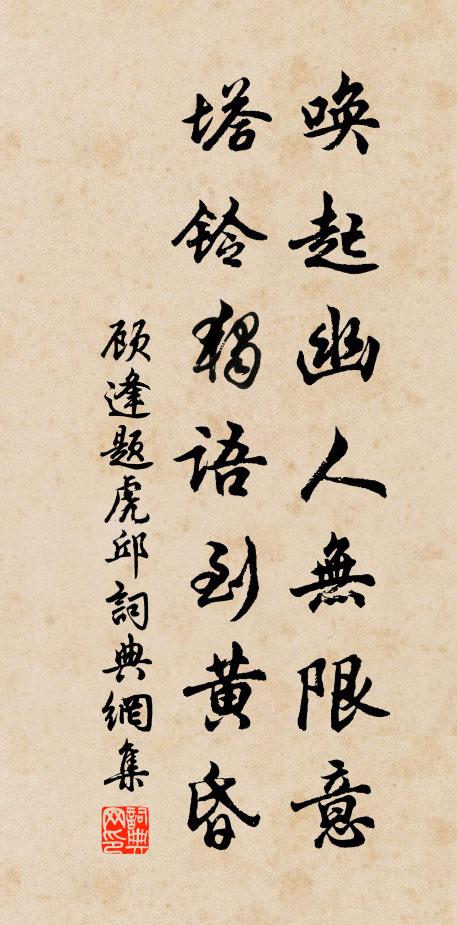 喚起幽人無限意
塔鈴獨語到黃昏
顾逢題虎邱詞典網集
詞典網印